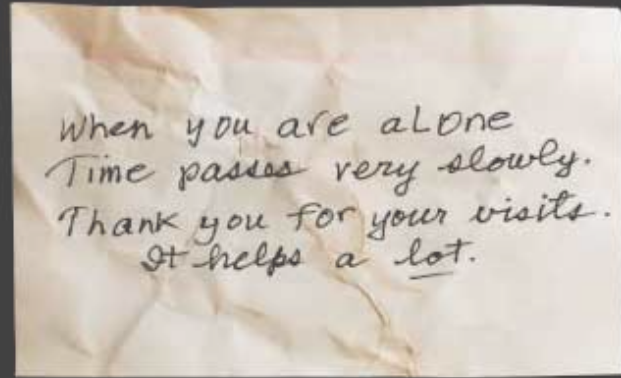 When you are aLone
Time passes very slowly.
Thank you for your visits.
It helps a lot.